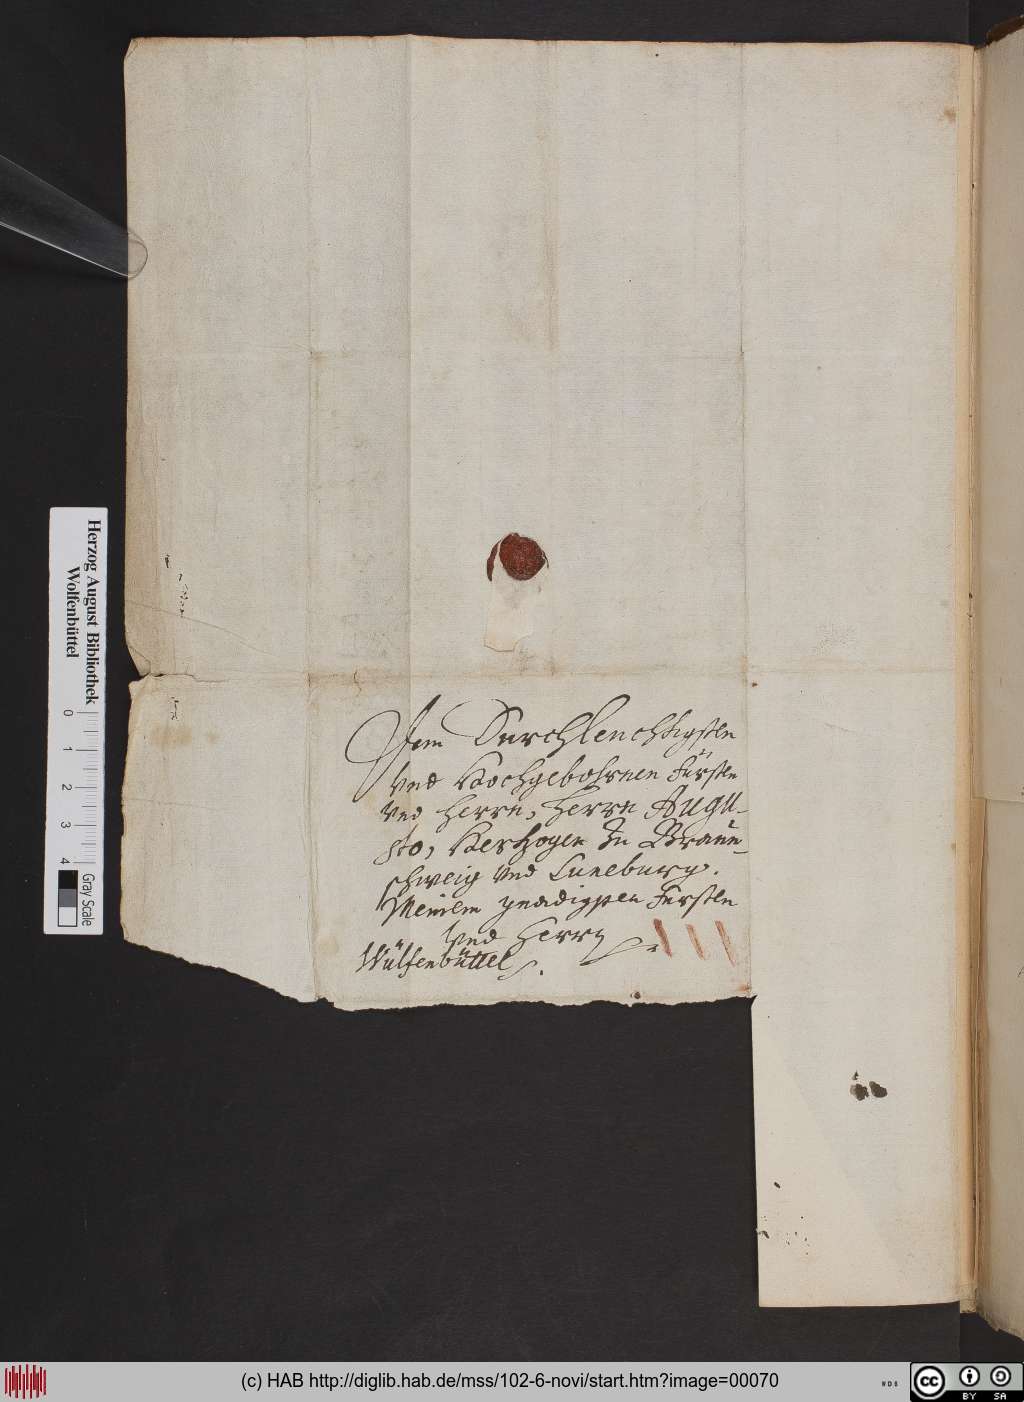 Dem Durchleuchtigsten
Vnd Hochgebohrnen Fürsten
Vnd Herrn, Herrn Augu-
sto, Hertzogen zu Braun-
schweig Vnd Luneburg.
Meinem gnedigsten Fursten
Vnd Herrn
Wülfenbüttel
Herzog August Bibliothek
Wolfenbüttel
0 1 2 3 4
Gray Scale
(c) HAB http://diglib.hab.de/mss/102-6-novi/start.htm?image=00070
WDB
cc BY SA